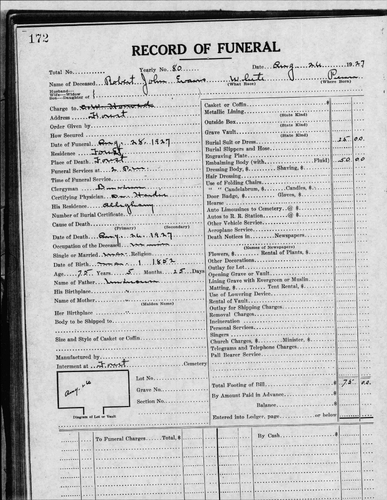 172
RECORD OF FUNERAL
Total No. Yearly No. 80 Date Aug 26 1927
Name of Deceased Robert John Evans White Penn
Husband— (What Race) (Where Born)
Wife—Widow
Son—Daughter of
Charge to
Address Forest
Order Given by
How Secured
Date of Funeral Aug. 28, 1927
Residence Forest
Place of Death Forest
Funeral Services at 2 P.m.
Time of Funeral Service
Clergyman
Certifying Physician Dr.
His Residence Allegheny
Number of Burial Certificate
Cause of Death
(Primary) (Secondary)
Date of Death Aug. 26, 1927
Occupation of the Deceased
Single or Married Religion
Date of Birth 1 1852
Age 75 Years 5 Months 25 Days
Name of Father Unknown
His Birthplace
Name of Mother
(Maiden Name)
Her Birthplace
Body to be Shipped to
Size and Style of Casket or Coffin
Manufactured by
Interment at Forest Cemetery
Lot No.
Grave No.
Section No.
Diagram of Lot or Vault
Casket or Coffin
Metallic Lining
(State Kind)
Outside Box
(State Kind)
Grave Vault
(State Kind)
Burial Suit or Dress 25 00
Burial Slippers and Hose
Engraving Plate
Embalming Body (with Fluid) 50 00
Dressing Body, $ Shaving, $
Hair Dressing
Use of Folding Chairs
" " Candelabrum, $ Candles, $
Door Badge, $ Gloves, $
Hearse
Auto Limousines to Cemetery @ $
Autos to R. R. Station @ $
Other Vehicle Service
Aeroplane Service
Death Notices in Newspapers
(Names of Newspapers)
Flowers, $ Rental of Plants, $
Other Decorations
Outlay for Lot
Opening Grave or Vault
Lining Grave with Evergreen or Muslin
Matting, $ Tent Rental, $
Use of Lowering Device
Rental of Vault
Outlay for Shipping Charges
Removal Charges
Incineration
Personal Services
Singers
Church Charges, $ Minister, $
Telegrams and Telephone Charges
Pall Bearer Service
Total Footing of Bill $ 75 00
By Amount Paid in Advance
Balance
Entered into Ledger, page or below
To Funeral Charges Total, $ By Cash $